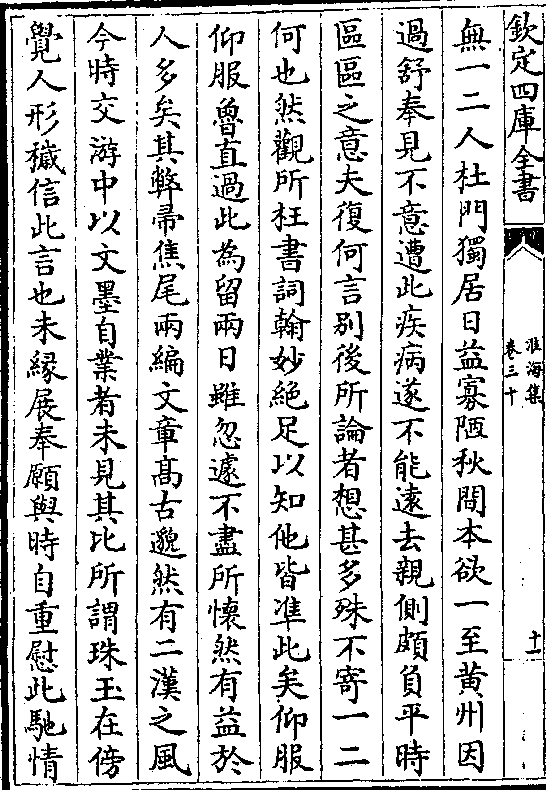 欽定四庫全書
淮海集
卷三十
十一
無一二人杜門獨居日益寡陋秋間本欲一至黄州因
過舒奉見不意遭此疾病遂不能逺去親側頗負平時
區區之意夫復何言别後所論者想甚多殊不寄一二
何也然觀所枉書詞翰妙絶足以知他皆凖此矣仰服
仰服魯直過此為留兩日雖忽遽不盡所懐然有益於
人多矣其弊帚焦尾兩編文章髙古邈然有二漢之風
今時交游中以文墨自業者未見其比所謂珠玉在傍
覺人形穢信此言也未縁展奉願與時自重慰此馳情